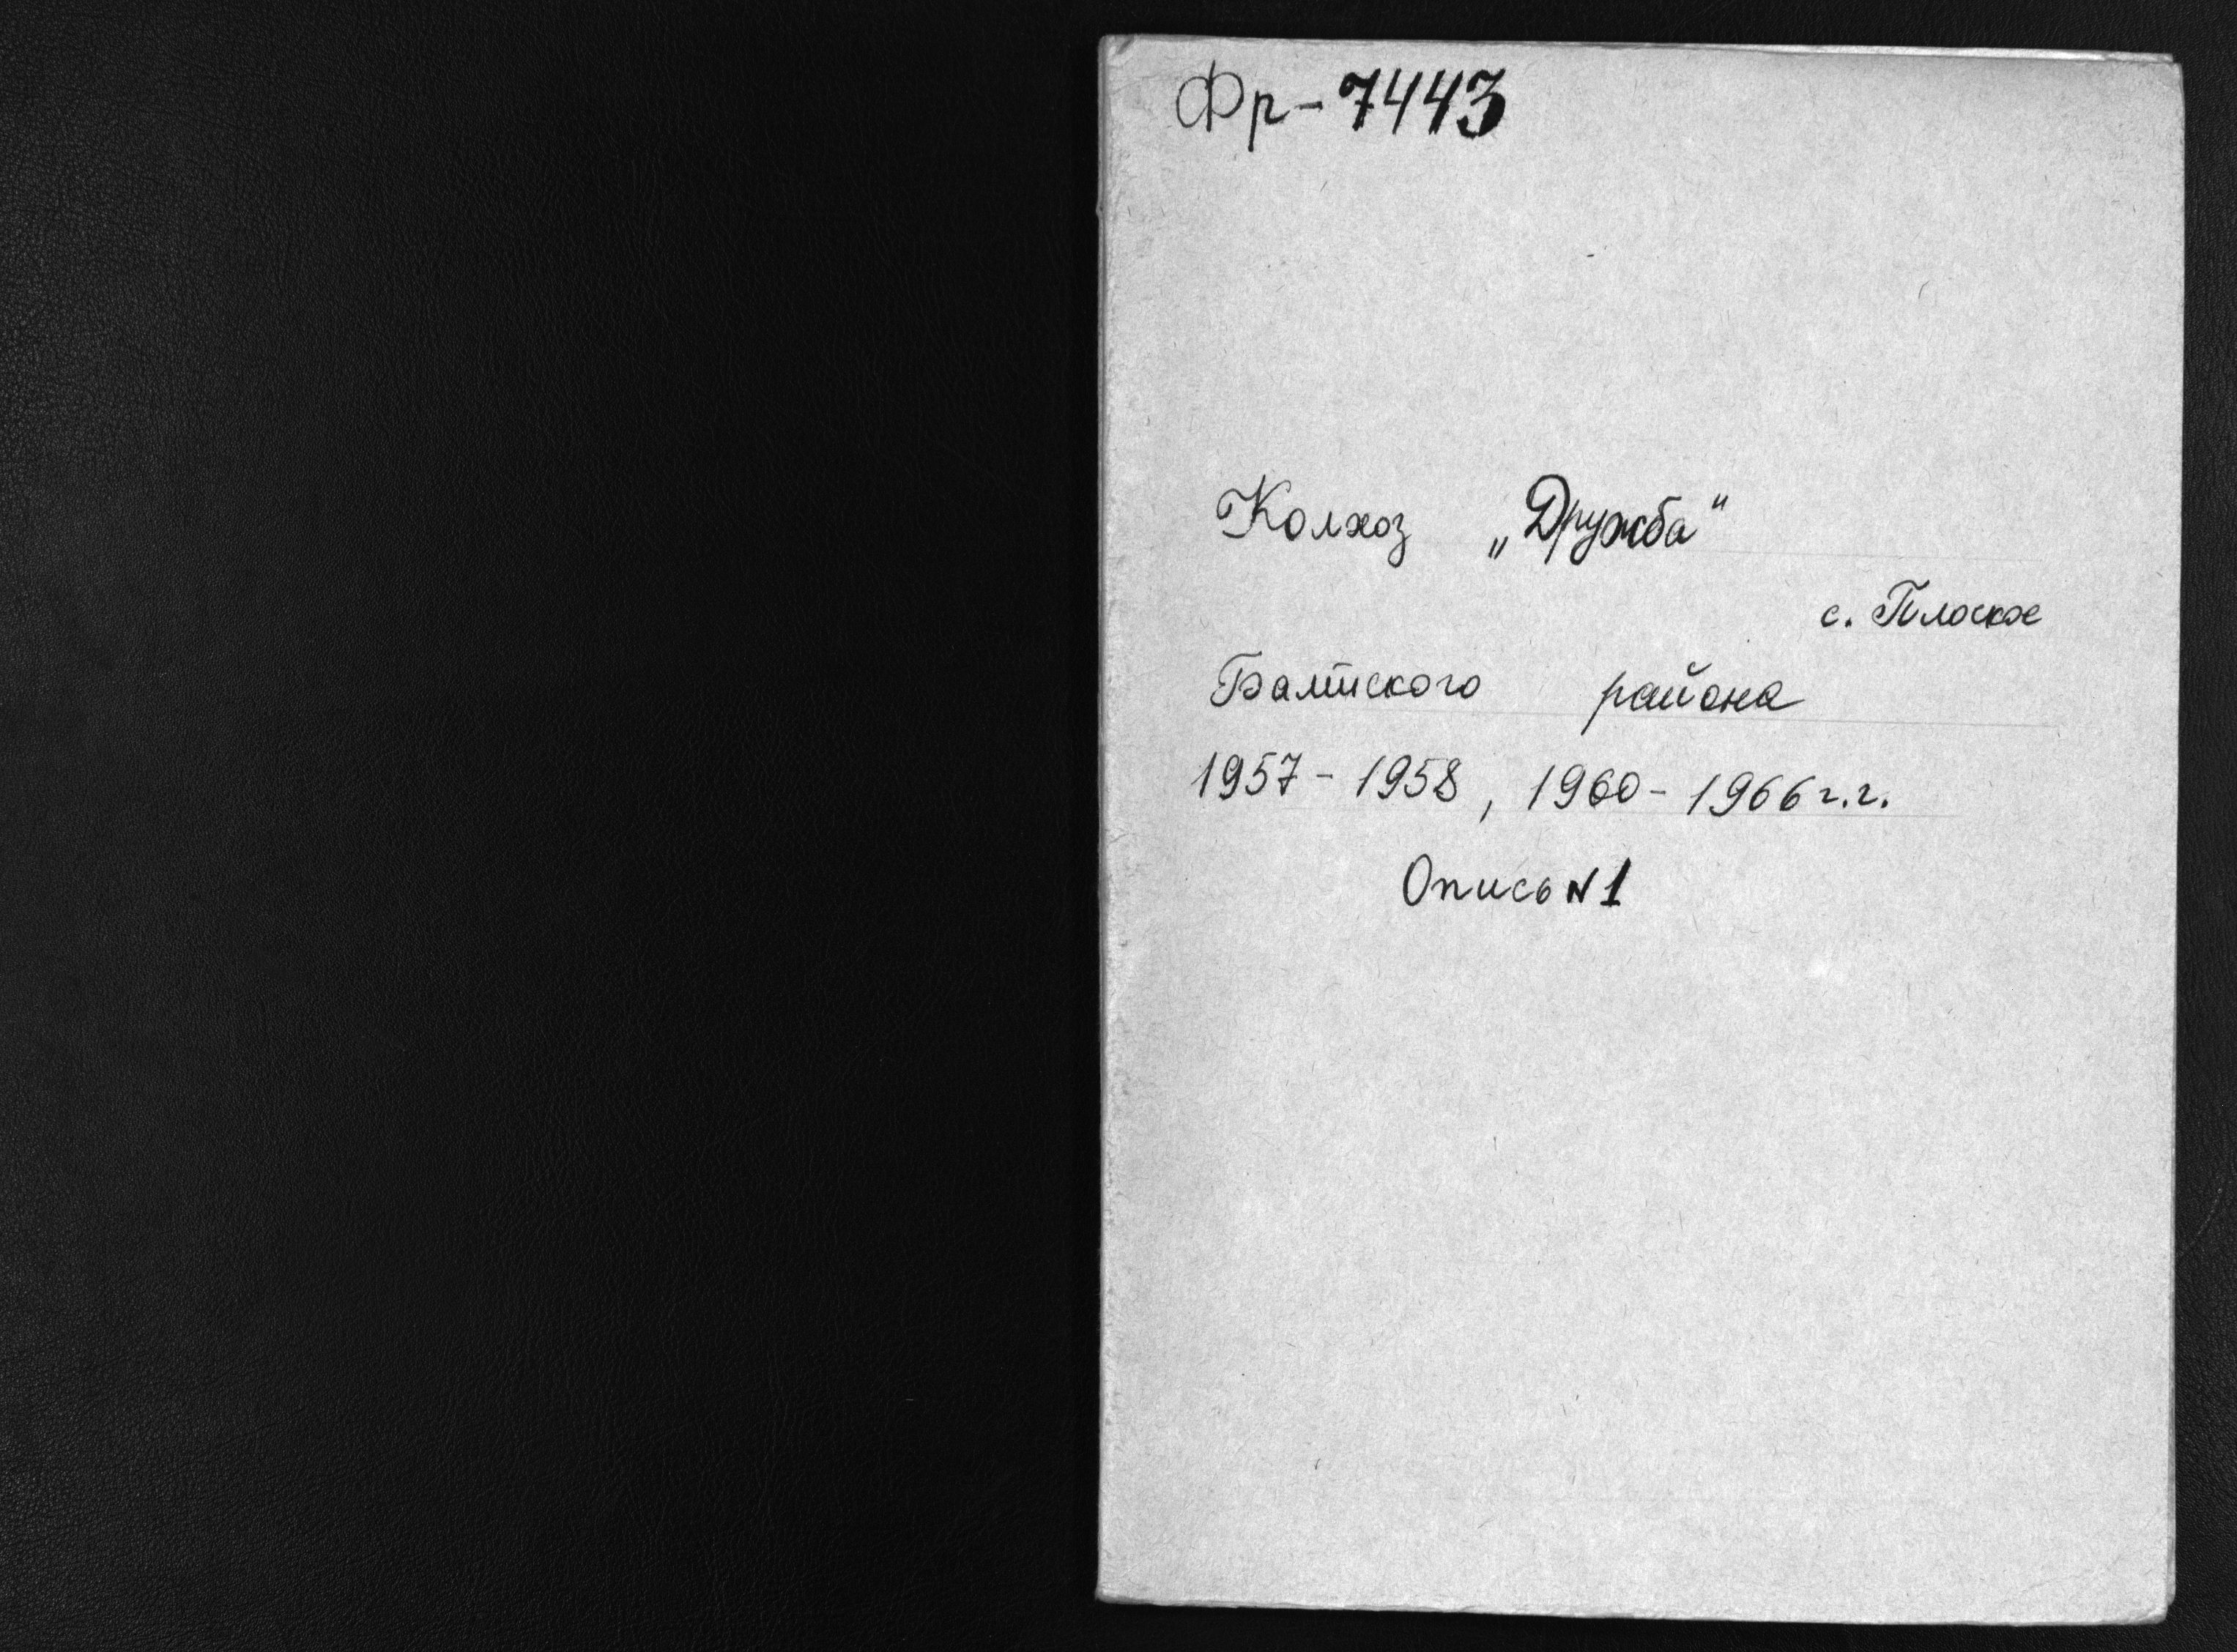 Фр-7443
Колхоз „Дружба"
с. Плоское
Балтского района
1957-1958, 1960-1966 г.г.
Опись N1